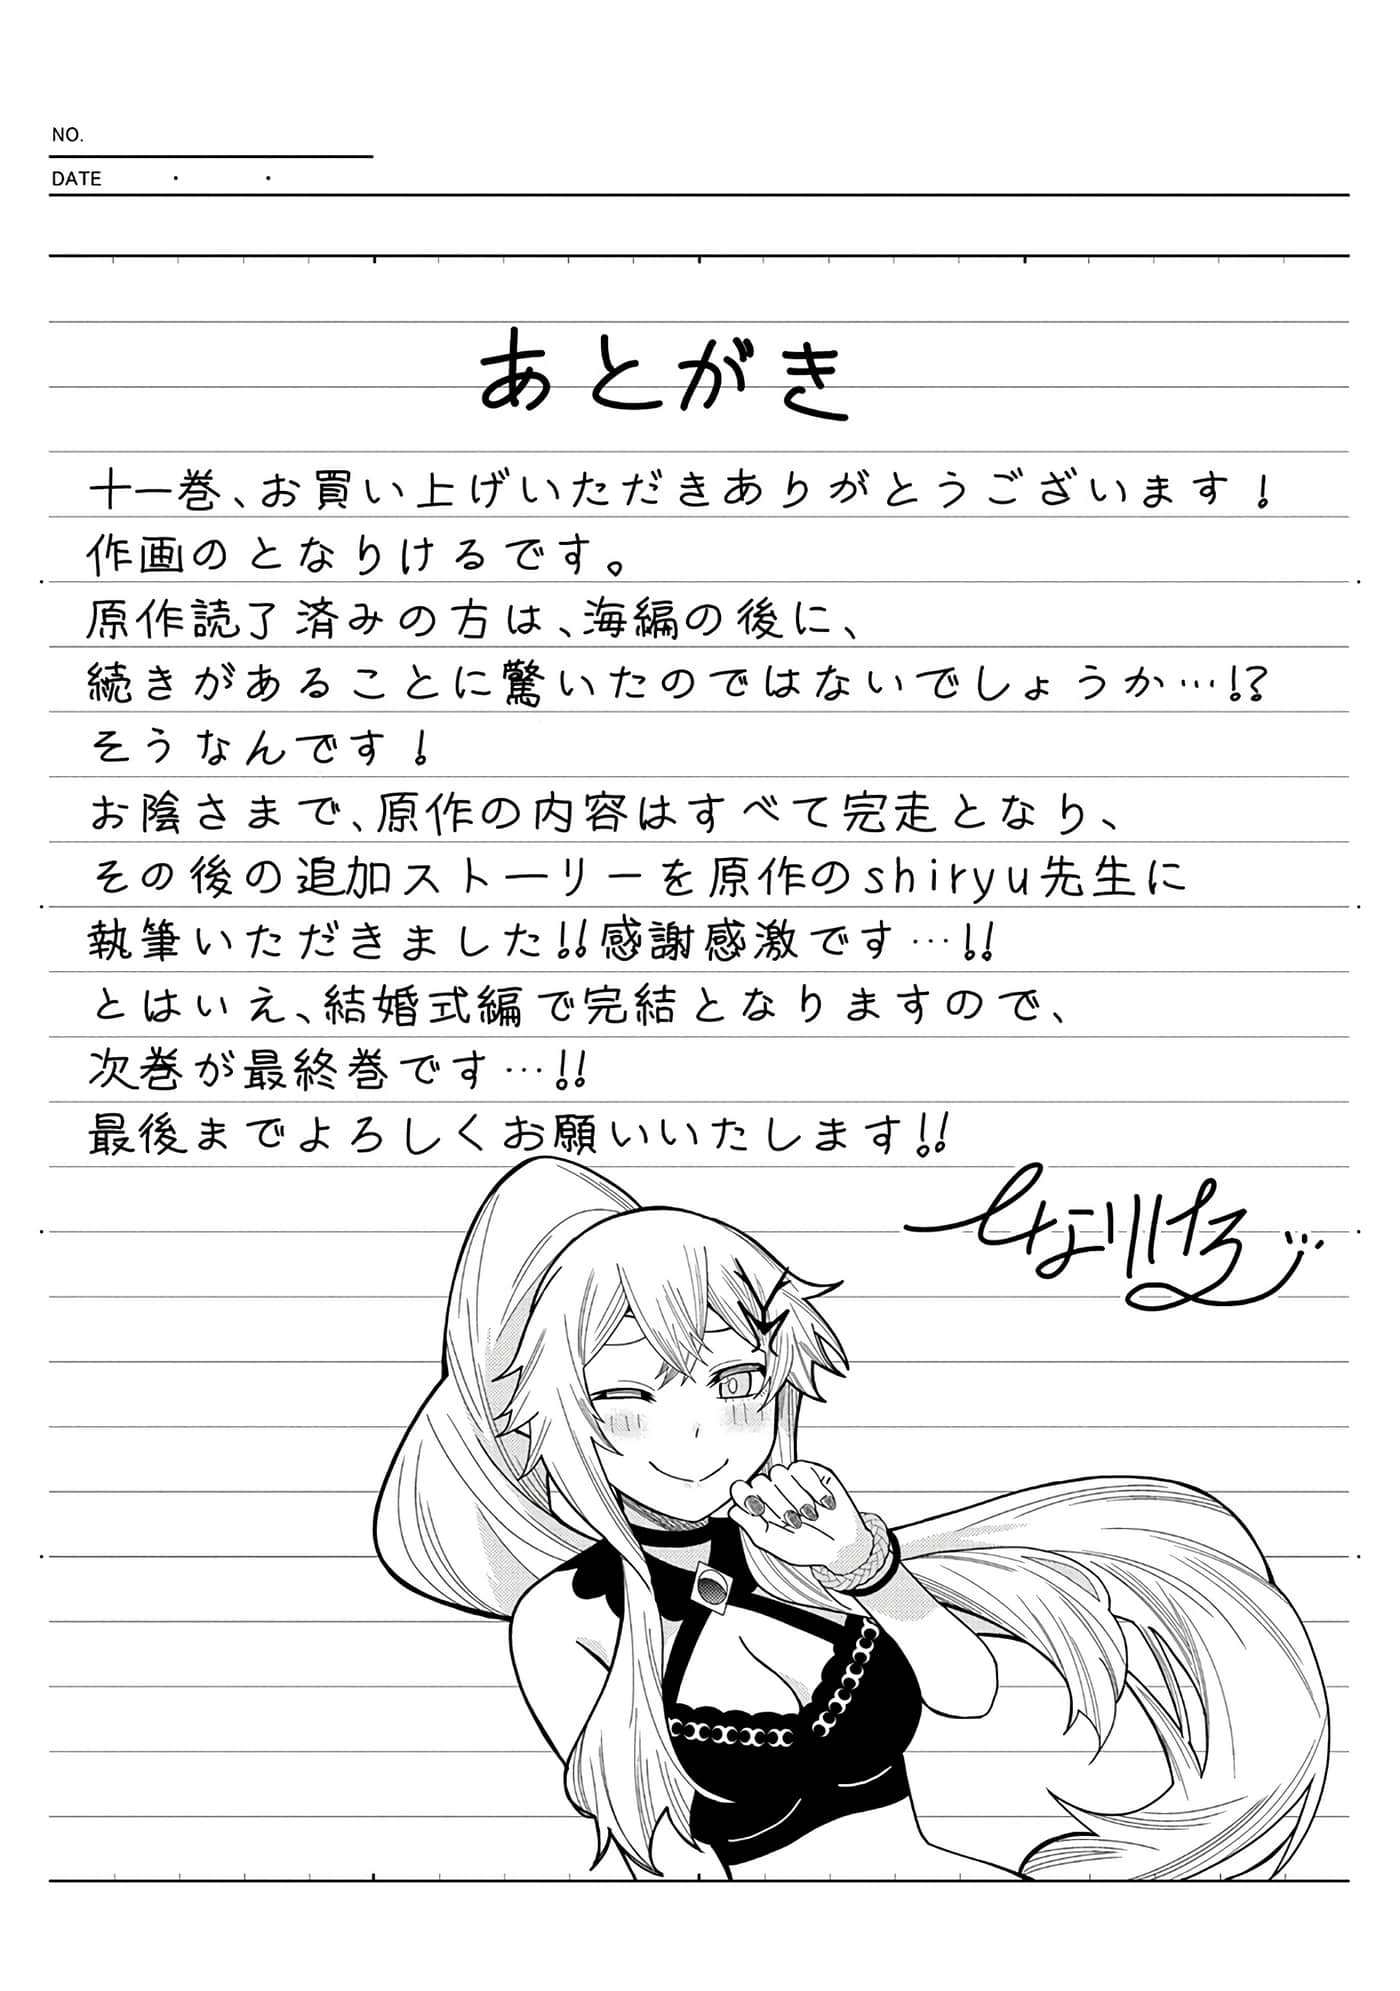 NO.
DATE ・ ・
あとがき
十一巻、お買い上げいただきありがとうございます！
作画のとなりけるです。
原作読了済みの方は、海編の後に、
続きがあることに驚いたのではないでしょうか…!?
そうなんです！
お陰さまで、原作の内容はすべて完走となり、
その後の追加ストーリーを原作のshiryu先生に
執筆いただきました!!感謝感激です…!!
とはいえ、結婚式編で完結となりますので、
次巻が最終巻です…!!
最後までよろしくお願いいたします!!
となりける